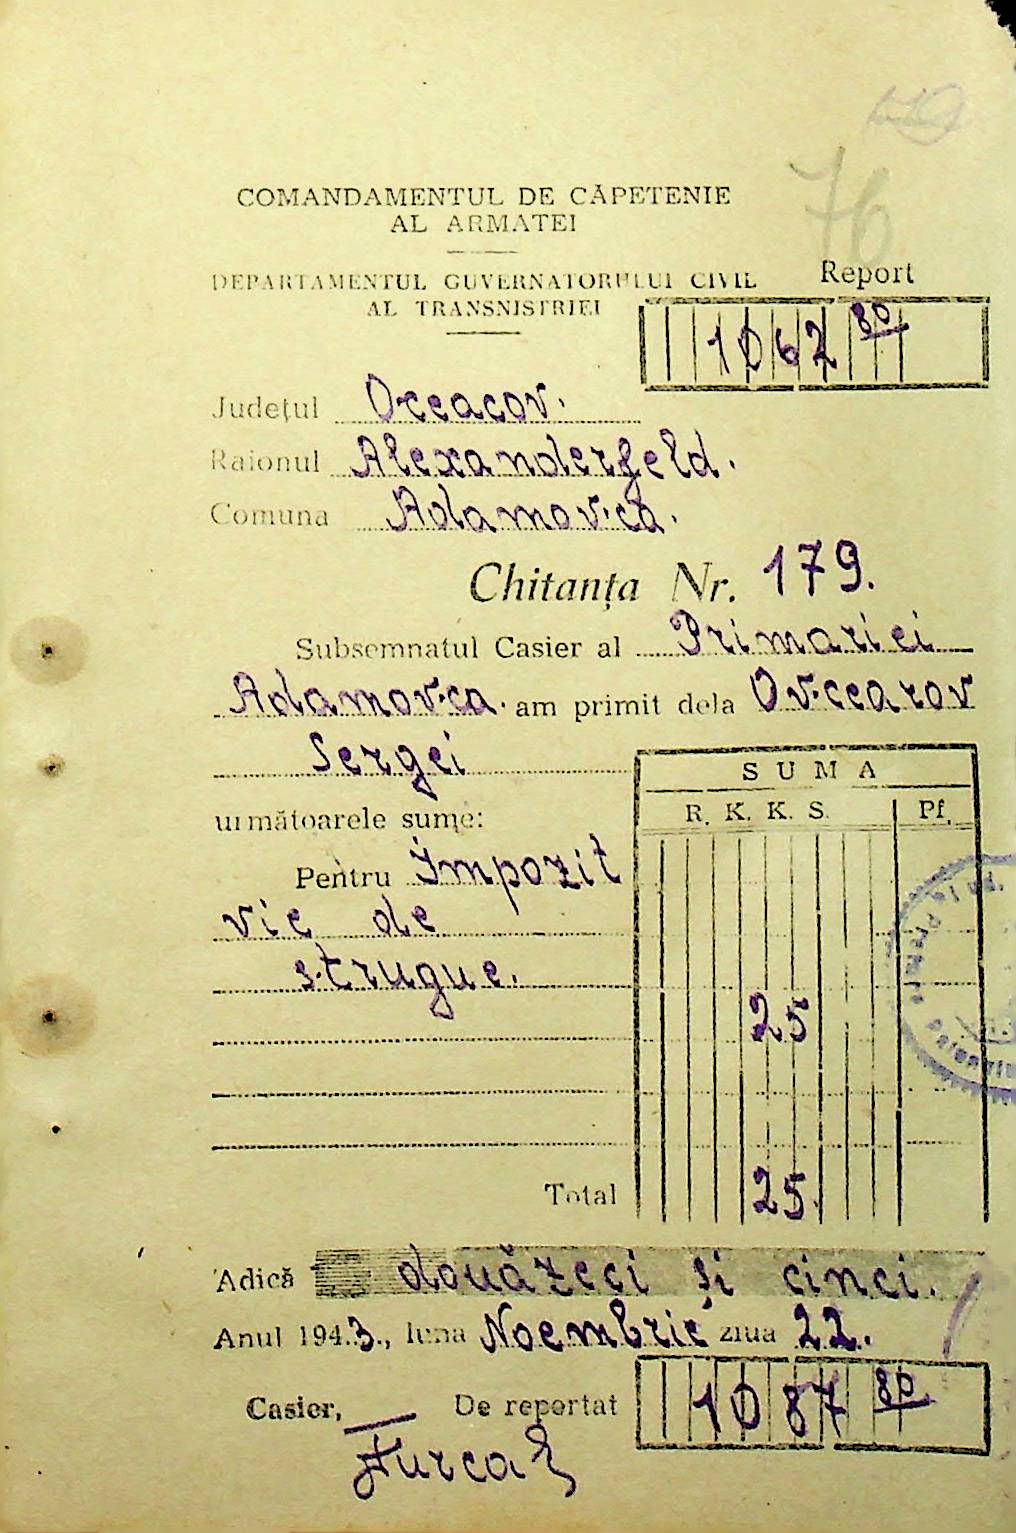 76
COMANDAMENTUL DE CĂPETENIE
AL ARMATEI
DEPARTAMENTUL GUVERNATORULUI CIVIL
AL TRANSNISTRIEI
Report
1062 80
Județul Oceacov.
Raionul Alexanderfeld.
Comuna Adamovca.
Chitanța Nr. 179.
Subsemnatul Casier al Primariei
Adamovca. am primit dela Ovcearov
Sergei
SUMA
R. K. K. S. Pf.
următoarele sume:
Pentru Impozit
vie de
strugure.
25
Total 25.
Adică douăzeci și cinci.
Anul 1943., luna Noembrie ziua 22.
Casier, De reportat 1087 80